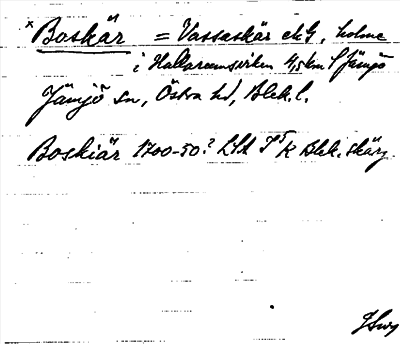 × Boskär = Vassaskär ekG, holme
i Hallarumsviken 4,5 km S Jämjö
Jämjö sn, Östra hd, Blek. l.
Boskiär 1700-50? LSA K Blek. skärg.